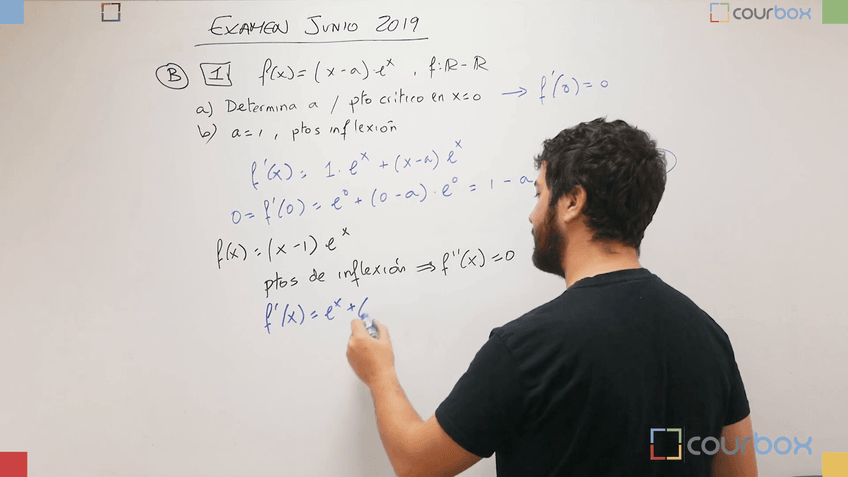 courbox
EXAMEN JUNIO 2019
B 1. f(x) = (x-a)·e^x , f:ℝ-ℝ
a) Determina a / pto crítico en x=0 → f'(0)=0
b) a=1, ptos inflexión
f'(x) = 1·e^x + (x-a)e^x
0 = f'(0) = e^0 + (0-a)·e^0 = 1-a
f(x) = (x-1)e^x
ptos de inflexión ⇒ f''(x)=0
f'(x) = e^x + (
courbox